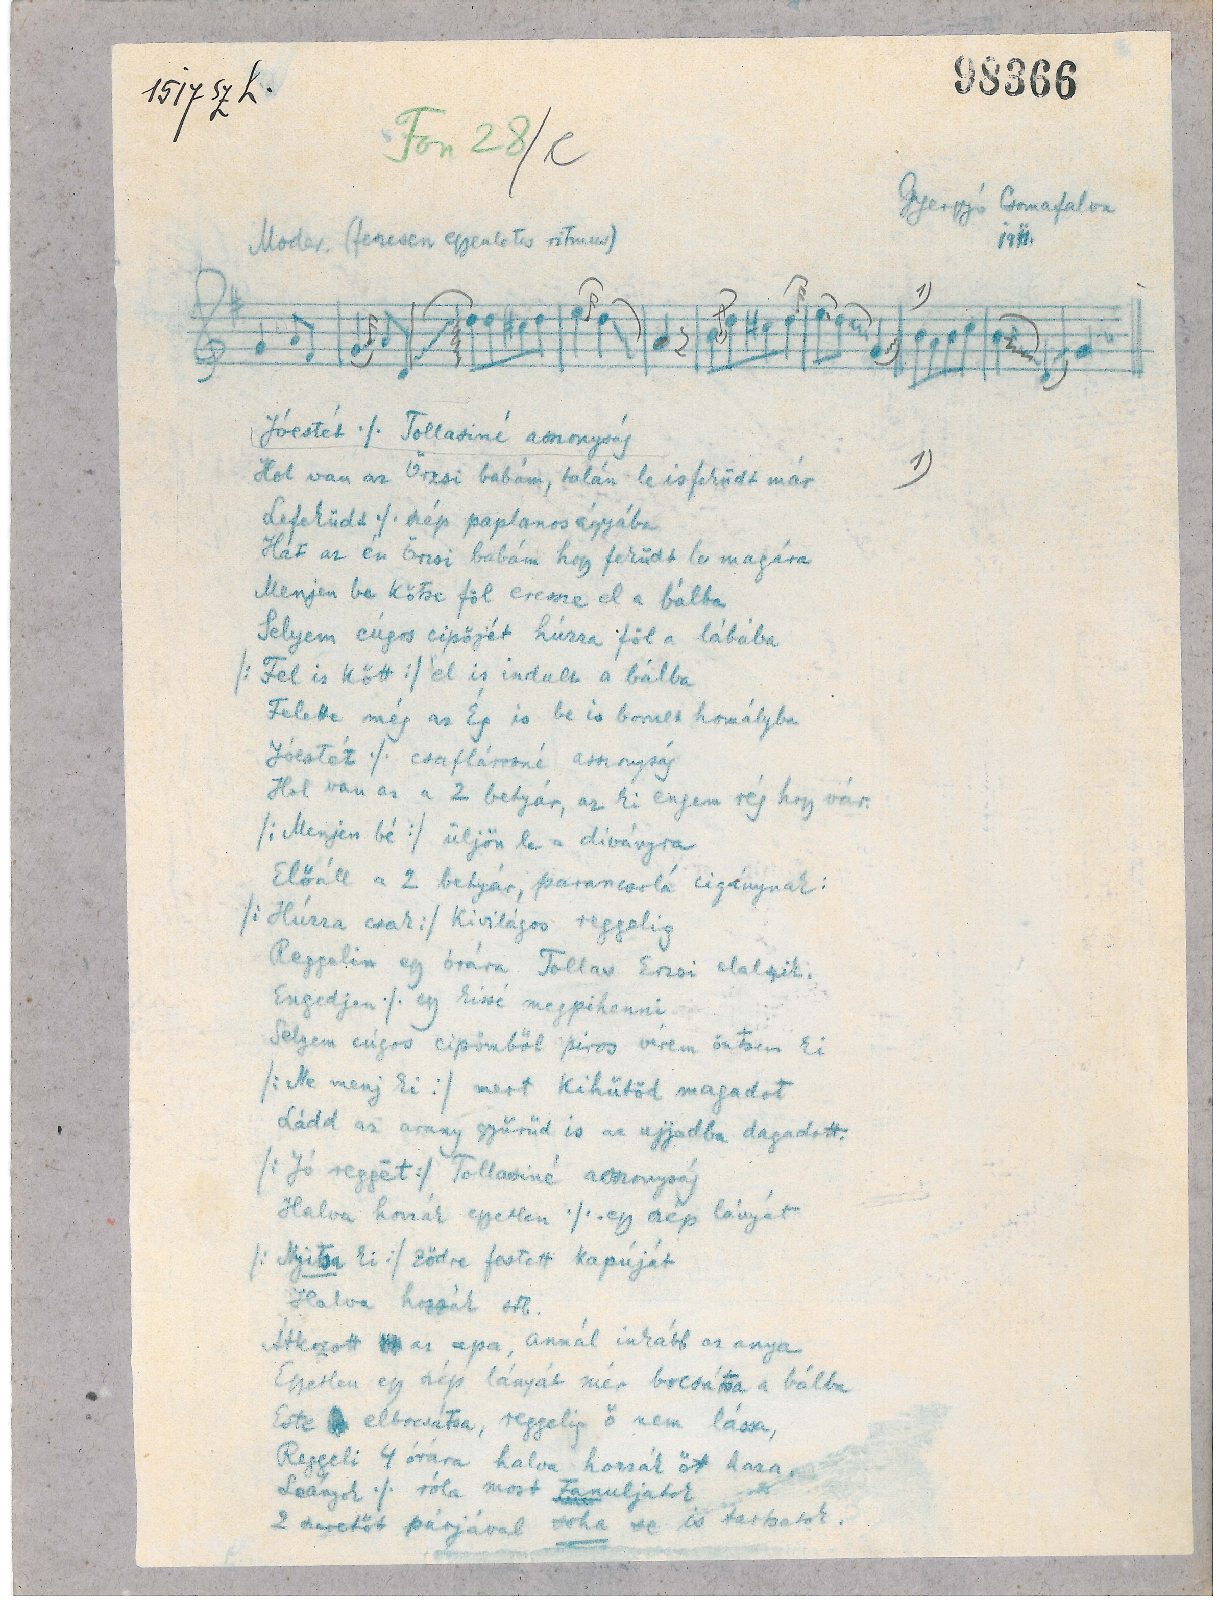 1517 sz L.
98366
Fon 28/c
Gyergyó Csomafalva
1911.
Moder. (feszesen egyenletes ritmus)
1)
Jóestét ./. Tollasiné asszonyság
Hol van az Örzsi babám, talán le is feküdt már
1)
Lefeküdt ./. szép paplanos ágyába
Hát az én Örzsi babám hogy feküdt le magára
Menjen be költse föl eressze el a bálba
Selyem cúgos cipőjét húzza föl a lábába
/: Fel is költ :/ el is indult a bálba
Felette még az Ég is be is borult homályba
Jóestét ./. csaflárosné asszonyság
Hol van az a 2 betyár, az ki engem rég hogy vár.
/: Menjen bé :/ üljön le a díványra
Előáll a 2 betyár, parancsolá cigánynak:
/: Húzza csak :/ Kivilágos reggelig
Reggelin egy órára Tollas Erzsi elalszik.
Engedjen ./. egy kissé megpihenni
Selyem cúgos cipőmből piros vérem öntsem ki
/: Ne menj ki :/ mert kihűtöd magadot
Ládd az arany gyűrűd is az ujjadba dagadott.
/: Jó reggēt :/ Tollasiné asszonyság
Halva hozzák egyetlen ./. egy szép lányát
/: Nyitsa ki :/ zödre festett kapuját
Halva hozzák stb.
Átkozott az apa, annál inkább az anya
Egyetlen egy szép lányát mér bocsátsa a bálba
Este elbocsátsa, reggelig ő nem lássa,
Reggeli 4 órára halva hozzák őt haza.
Leányok ./. róla most tanuljatok
2 szeretőt párjával soha se is tartsatok.